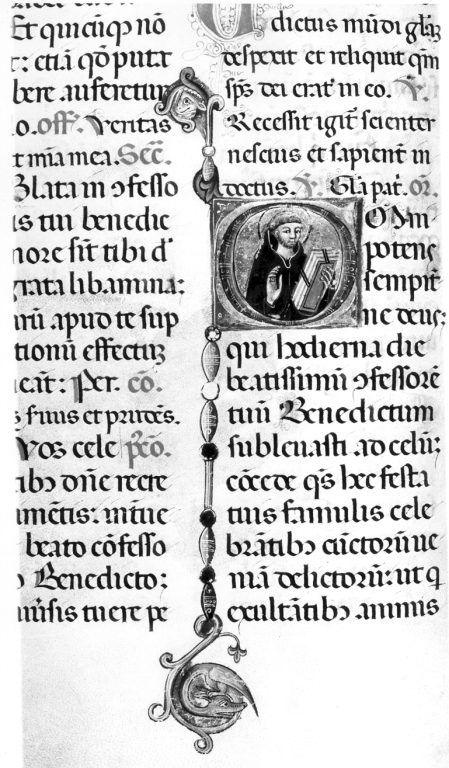 Et quicũqȝ nõ
r: etiã qđ putat
bere auferetur
o. off. Veritas
t mĩa mea. Secͨ.
Blata in ɔfesso
is tui benedic
nore sint tibi dͥ
grata libamina:
irũ apud te sup
tionũ effectuȝ
icãt: Per. cõ.
s fiuus et prudẽs.
Vos cele pͤcõ.
ibȝ dñe recre
amẽtis: intue
beato cõfesso
Benedicto:
tuere pe
dictus mũdi glãȝ
despexit et reliquit qm̃
sps̃ dei erat in eo. ℣.
Recessit igit̃ scienter
nescius et sapient̃ in
doctus. ℣. Gl̃a pat̃. or̃.
Omni
potens
sempit̃
ne deus:
qui hodierna die
beatissimũ ɔfessorẽ
tuũ Benedictum
subleuasti ad celũȝ
cõcede qs̃ hec festa
tuis famulis cele
brãtibȝ cũctorũ ue
niã delictorũ: ut q
exultãtibȝ animis